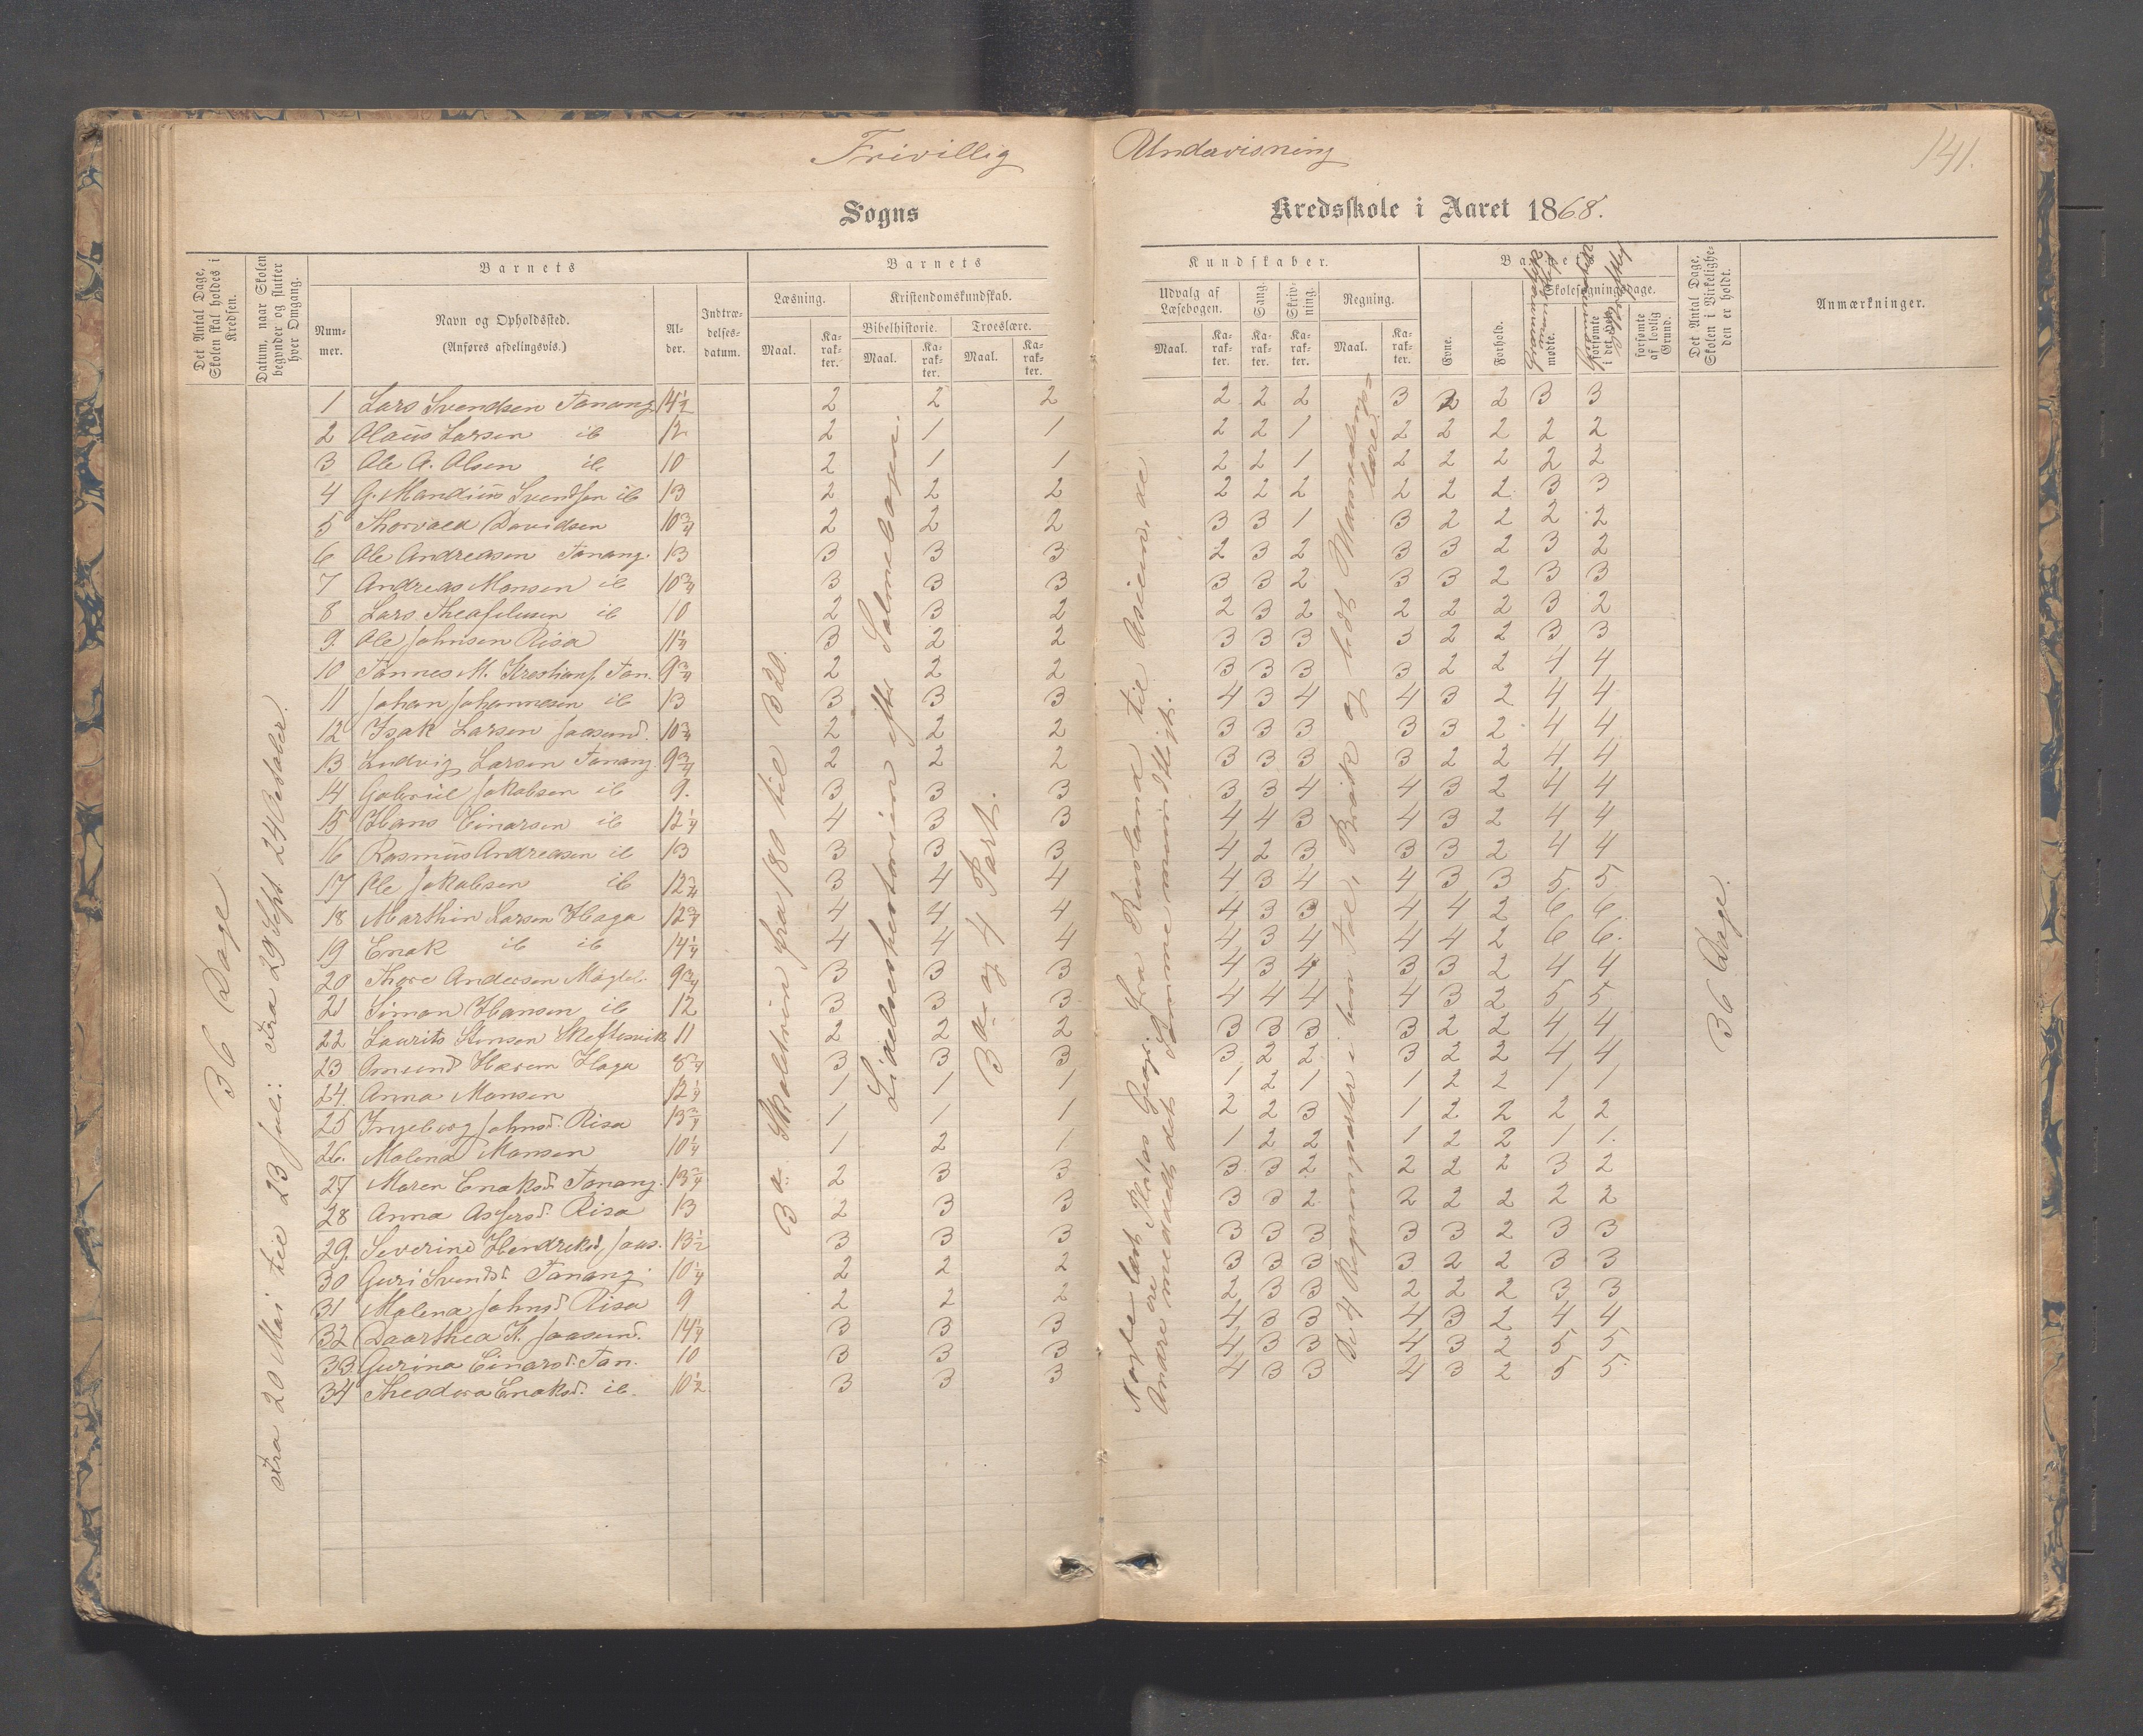 Frivillig Undervisning
141.
Sogns Kredsskole i Aaret 1868.
Det Antal Dage, Skolen skal holdes i Kredsen.
Datum, naar Skolen begynder og slutter hver Omgang.
Barnets
Nummer.
Navn og Opholdssted.
(Anføres afdelingsvis.)
Alder.
Indtrædelsesdatum.
Barnets
Læsning.
Maal.
Karakter.
Kristendomskundskab.
Bibelhistorie.
Maal.
Karakter.
Troeslære.
Maal.
Karakter.
Kundskaber.
Udvalg af Læsebogen.
Maal.
Karakter.
Sang.
Karakter.
Skrivning.
Karakter.
Regning.
Maal.
Karakter.
Barnets
Evne.
Forhold.
Skolesøgningsdage.
mødte.
forsømte i det Hele.
forsømte af lovlig Grund.
Det Antal Dage, Skolen i Virkeligheden er holdt.
Anmærkninger.
36 Dage.
Fra 20 Mai til 23 Juli: Fra 29 Sept 24 October.
3 a: Skoletrin fra 180 til 320.
Lidelseshistorien efter Salmebogen.
3 a og 4 Part.
Fra Rusland til Asien, de
Andre meddelt det Samme mundtligt.
De 4 Regningsarter i hele Tal, Brøk og lidt
36 Dage.
1 Lars Svendsen Tanang 14½ 2 2 2 2 2 2 3 2 2 3 3
2 Olaus Larsen ib 12 2 1 1 2 2 1 2 2 2 2 2
3 Ole A. Olsen ib 10 2 1 1 2 2 1 2 2 2 2 2
4 G. Mandius Svendsen ib 13 2 2 2 2 2 2 2 2 2 3 3
5 Thorvald Davidsen 10¾ 2 2 2 3 3 1 3 2 2 2 2
6 Ole Andreasen Tanang. 13 3 3 3 2 3 2 3 3 2 3 2
7 Andreas Monsen ib 10¾ 3 3 3 3 3 2 3 3 2 3 3
8 Lars Theofelusen ib 10 2 3 2 2 3 2 2 2 2 3 2
9. Ole Johnsen Risa 11¼ 3 2 2 3 3 3 3 2 2 3 3
10 Tønnes M. Krestians. Tan. 9¾ 2 2 2 3 3 3 3 2 2 4 4
11 Johan Johannesen ib 13 3 3 3 4 3 4 4 3 2 4 4
12 Isak Larsen Jaasund. 10¾ 2 2 2 3 3 3 3 3 2 4 4
13 Ludvig Larsen Tanang 9¾ 2 2 2 3 3 3 3 2 2 4 4
14 Gabriel Jakobsen ib 9. 3 3 3 3 3 4 4 3 2 4 4
15 Hans Einarsen ib 12¼ 4 3 3 4 4 3 4 3 2 4 4
16 Rasmus Andreasen ib 13 3 3 3 4 2 3 3 3 2 4 4
17 Ole Jakobsen ib 12¾ 3 4 4 4 3 4 4 3 3 5 5
18 Marthin Larsen Haga 12¾ 4 4 4 4 3 3 4 4 2 6 6
19 Enok ib ib 14¼ 4 4 4 4 3 4 4 4 2 6 6.
20 Thore Andersen 9¾ 3 3 3 4 3 4 3 3 2 4 4
21 Simon Hansen ib 12 3 3 3 4 4 4 4 3 2 5 5
22 Laurits 11 2 2 2 3 3 3 3 2 2 4 4
23 Omund Haga 8¾ 3 3 3 3 2 2 3 2 2 4 4
24. Anna Monsen 12¼ 1 1 1 1 2 1 1 2 2 1 1
25 Ingeborg Johnsd. Risa 13¾ 1 1 1 2 2 3 1 2 2 2 2
26. Malena Monsen 10¼ 1 2 1 1 2 2 1 2 2 1 1.
27 Maren Enoksd. Tanang. 13¾ 2 3 3 3 3 2 2 2 2 3 2
28 Anna Risa 13 2 3 3 3 3 2 2 2 2 2 2
29. Severine Hendriksd. Jaas. 13½ 3 3 3 3 3 3 3 3 2 3 3
30 Guri Svendsd. Tanang. 10¼ 2 2 2 3 3 3 3 2 2 3 3
31 Malena Johnsd. Risa 9 2 2 2 2 3 3 2 2 2 3 3
32 Daarthea K. Jaasund. 14¼ 3 3 3 4 3 3 4 3 2 4 4
33. Gurina Einarsd. Tan. 10 3 3 3 4 3 3 4 3 2 5 5
34 Theodora Enoksd. ib. 10½ 3 3 3 4 3 3 4 3 2 5 5.